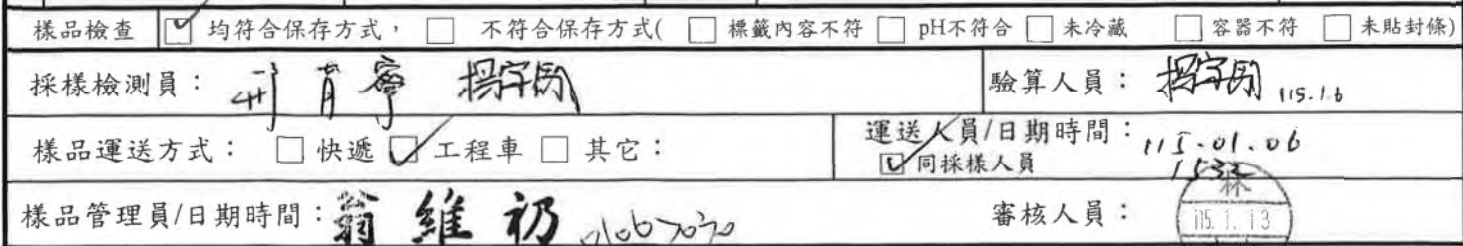 樣品檢查 ☑ 均符合保存方式，☐ 不符合保存方式( ☐ 標籤內容不符 ☐ pH不符合 ☐ 未冷藏 ☐ 容器不符 ☐ 未貼封條)
採樣檢測員： 驗算人員： 115.1.6
樣品運送方式：☐ 快遞 ☑ 工程車 ☐ 其它： 運送人員/日期時間：115.01.06
☑ 同採樣人員 1532
樣品管理員/日期時間：翁維礽 審核人員： 林
115.1.13